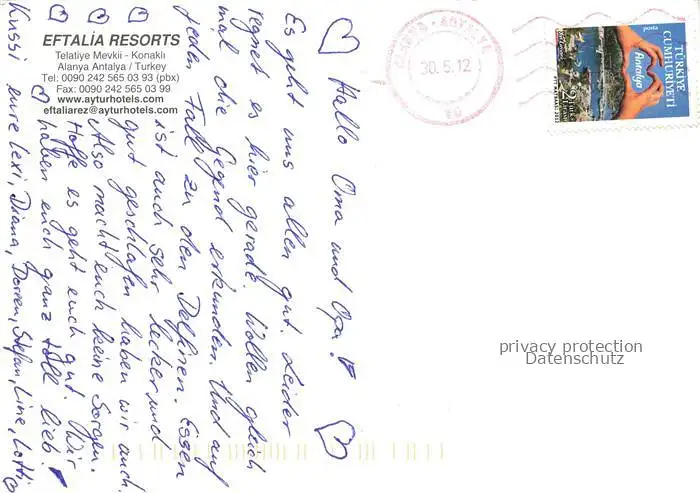 EFTALİA RESORTS
Telatiye Mevkii - Konaklı
Alanya Antalya / Turkey
Tel: 0090 242 565 03 93 (pbx)
Fax: 0090 242 565 03 99
www.ayturhotels.com
eftaliarez@ayturhotels.com
Hallo Oma und Opa!
Es geht uns allen gut. Leider
regnet es hier gerade. Wollen gleich
mal die Gegend erkunden. Und auf
jeden Fall zu den Delfinen. Essen
ist auch sehr lecker und
gut geschlafen haben wir auch.
Also macht euch keine Sorgen.
Hoffe es geht euch gut. Wir
haben euch ganz toll lieb!
Kussi eure Lexi, Diana, Doreen, Stefan, Line, Lotti
30.5.12
TÜRKİYE
CUMHURİYETİ
posta
Antalya
privacy protection
Datenschutz